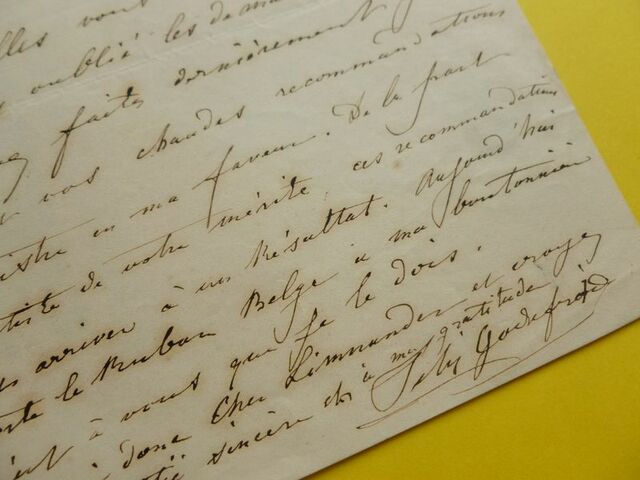 elles vous
oublié les dem
faites dernièrement
vos chaudes recommandations
istre en ma faveur. De la part
tiste de votre mérite, ces recommandations
arriver à un Résultat. Aujourd'hui
te le Ruban Belge à ma boutonnière
à vous que je le dois.
donc Cher Limnander et croyez
sincère et à ma gratitude
Félix Godefroid